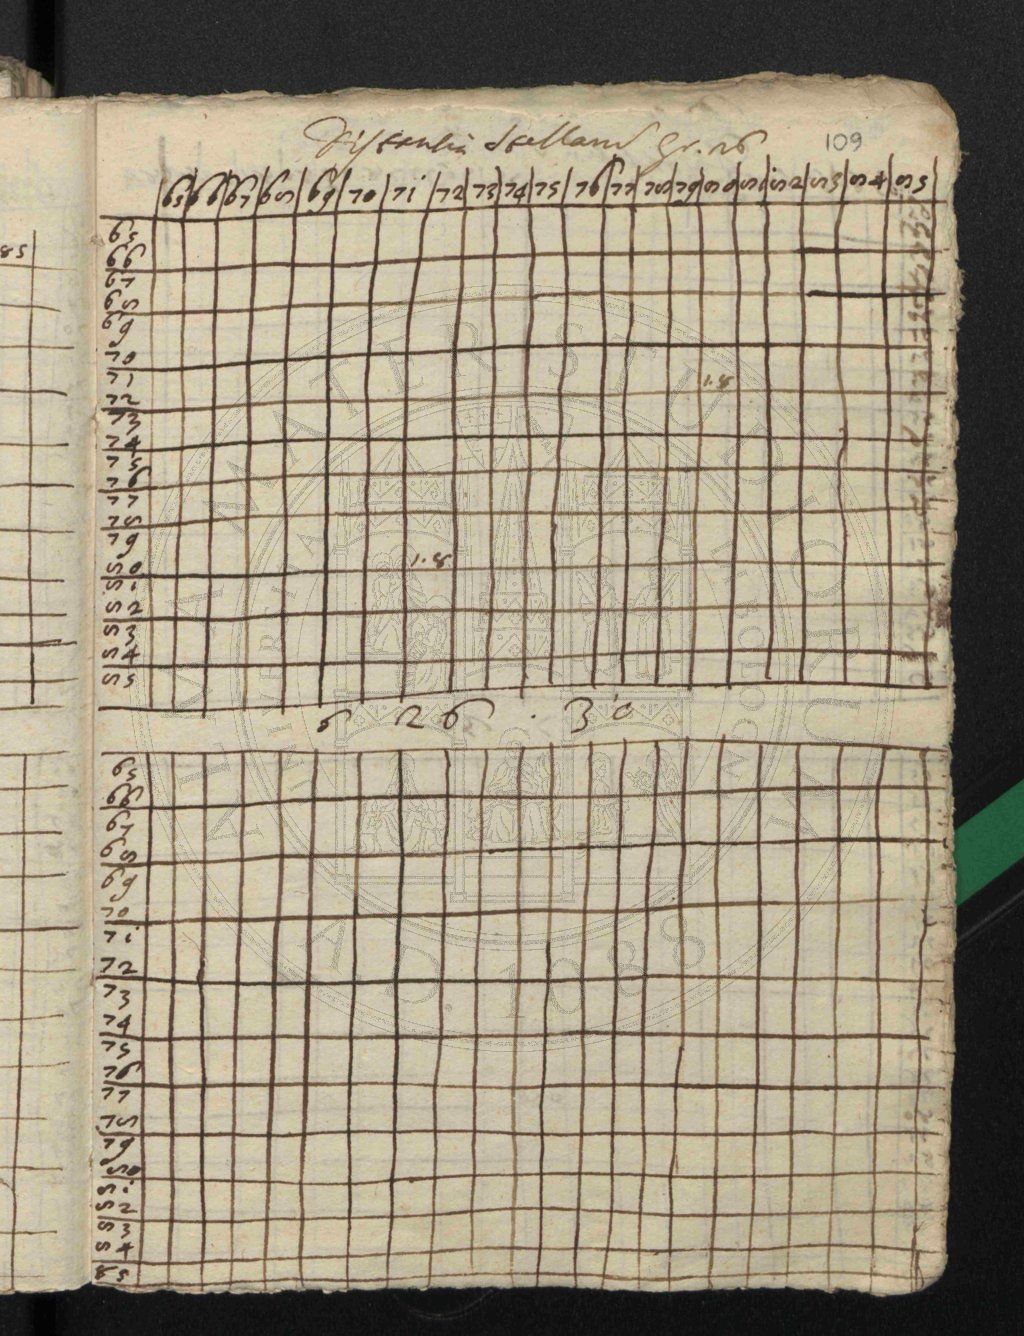 Distantia stellarum gr. 26 109
65 66 67 68 69 70 71 72 73 74 75 76 77 78 79 80 81 82 83 84 85
85
65
66
67
68
69
70
71
1.8
72
73
74
75
76
77
78
79
80 1.8
81
82
83
84
85
26 . 30
65
66
67
68
69
70
71
72
73
74
75
76
77
78
79
80
81
82
83
84
85
ALMA MATER STUDIORUM
A.D. 1088